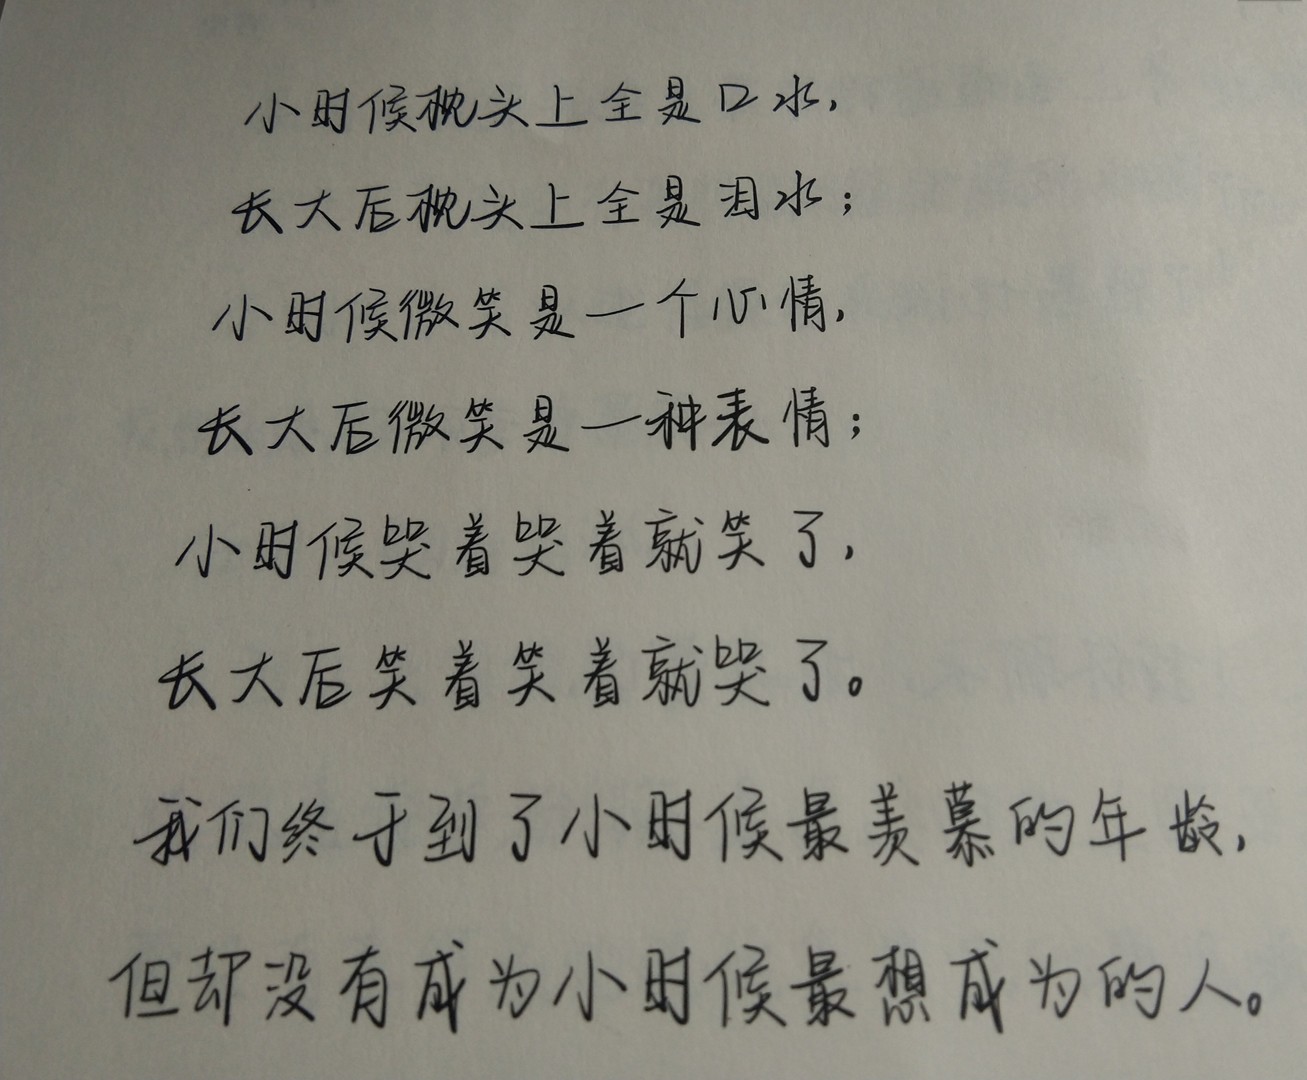 小时候枕头上全是口水,
长大后枕头上全是泪水;
小时候微笑是一个心情,
长大后微笑是一种表情;
小时候哭着哭着就笑了,
长大后笑着笑着就哭了。
我们终于到了小时候最羡慕的年龄,
但却没有成为小时候最想成为的人。